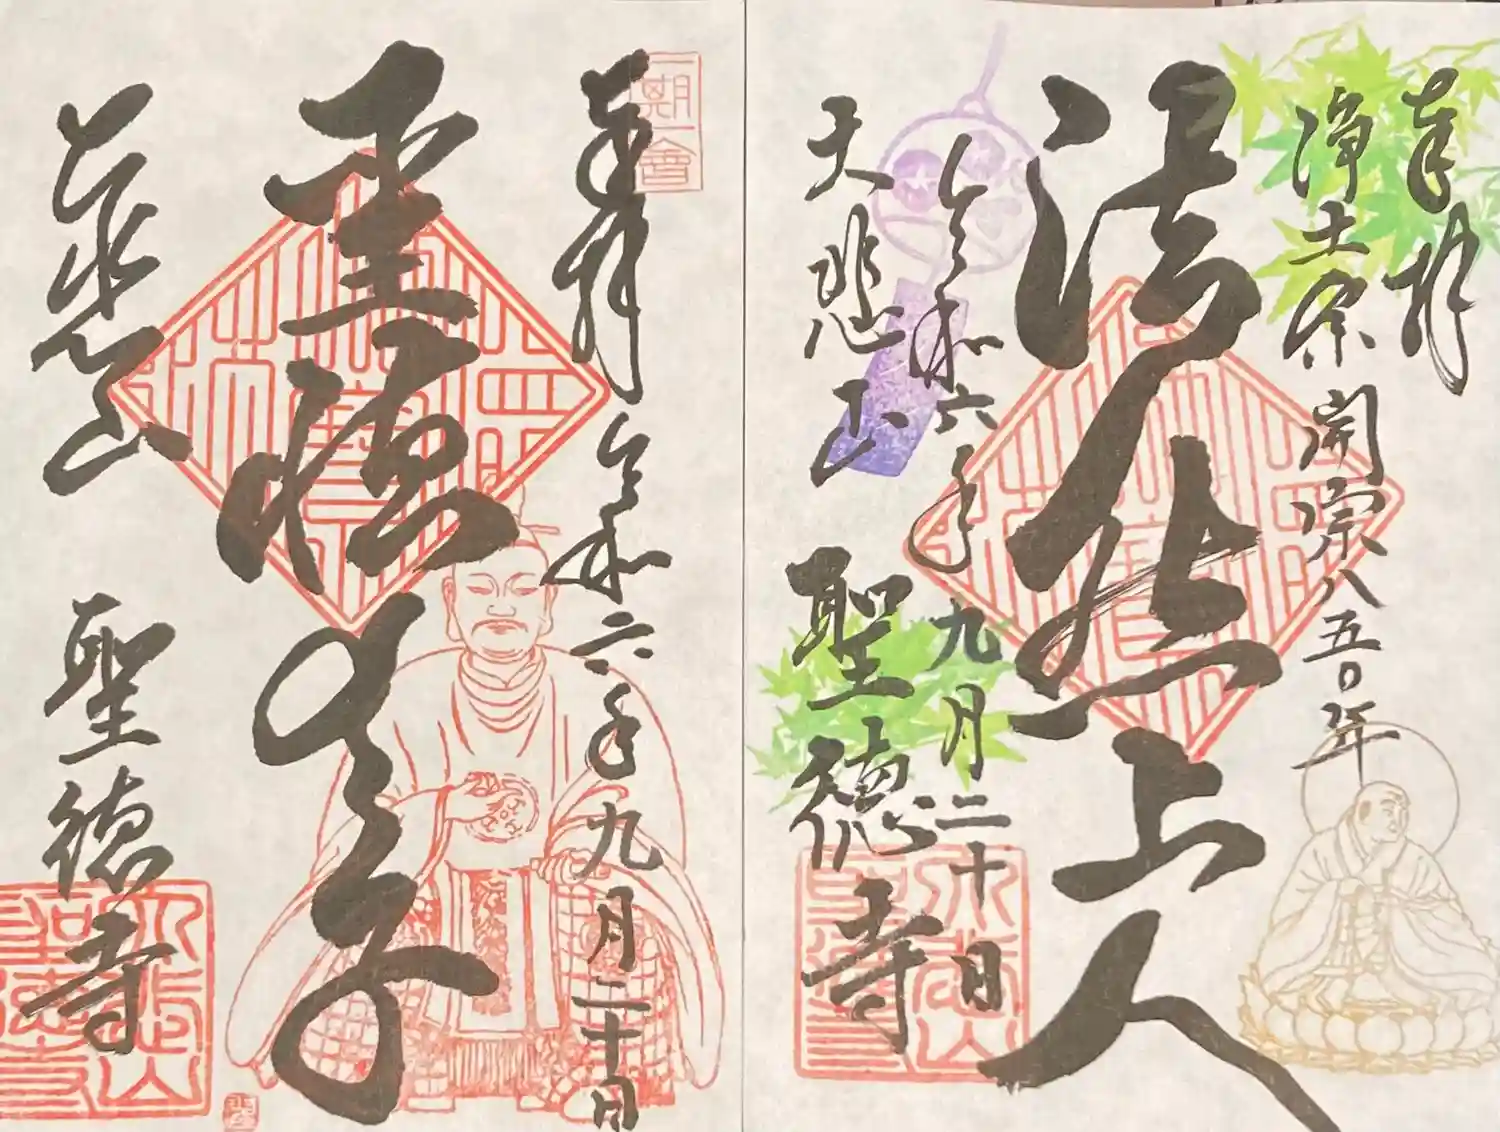 奉拝
浄土宗開宗八五〇年
法然上人
令和六年九月二十日
大悲山
聖徳寺
一期一會
奉拝
令和六年九月二十日
聖徳太子
大悲山
聖徳寺